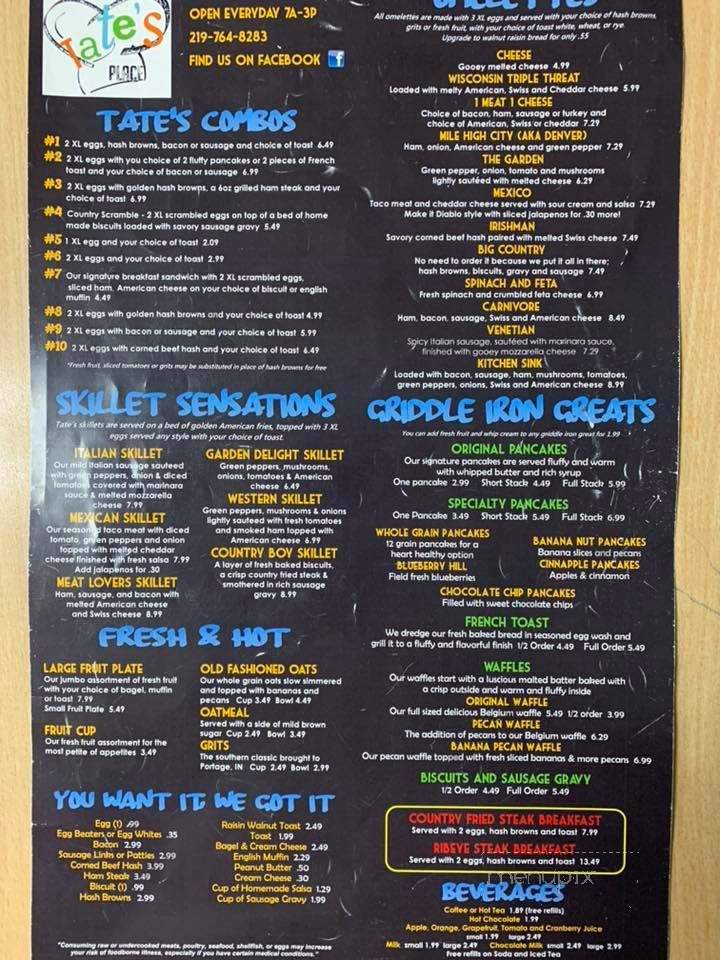 Tate's
PLACE
OPEN EVERYDAY 7A-3P
219-764-8283
FIND US ON FACEBOOK f
TATE'S COMBOS
#1 2 XL eggs, hash browns, bacon or sausage and choice of toast 6.49
#2 2 XL eggs with you choice of 2 fluffy pancakes or 2 pieces of French
toast and your choice of bacon or sausage 6.99
#3 2 XL eggs with golden hash browns, a 6oz grilled ham steak and your
choice of toast 6.99
#4 Country Scramble - 2 XL scrambled eggs on top of a bed of home
made biscuits loaded with savory sausage gravy 5.49
#5 1 XL egg and your choice of toast 2.09
#6 2 XL eggs and your choice of toast 2.99
#7 Our signature breakfast sandwich with 2 XL scrambled eggs,
sliced ham, American cheese on your choice of biscuit or english
muffin 4.49
#8 2 XL eggs with golden hash browns and your choice of toast 4.99
#9 2 XL eggs with bacon or sausage and your choice of toast 5.99
#10 2 XL eggs with corned beef hash and your choice of toast 6.49
*Fresh fruit, sliced tomatoes or grits may be substituted in place of hash browns for free
SKILLET SENSATIONS
Tate's skillets are served on a bed of golden American fries, topped with 3 XL
eggs served any style with your choice of toast.
ITALIAN SKILLET
Our mild italian sausage sauteed
with green peppers, onion & diced
tomatoes covered with marinara
sauce & melted mozzarella
cheese 7.99
MEXICAN SKILLET
Our seasoned taco meat with diced
tomato, green peppers and onion
topped with melted cheddar
cheese finished with fresh salsa 7.99
Add jalapenos for .30
MEAT LOVERS SKILLET
Ham, sausage, and bacon with
melted American cheese
and Swiss cheese 8.99
GARDEN DELIGHT SKILLET
Green peppers, mushrooms,
onions, tomatoes & American
cheese 6.49
WESTERN SKILLET
Green peppers, mushrooms & onions
lightly sauteed with fresh tomatoes
and smoked ham topped with
American cheese 6.99
COUNTRY BOY SKILLET
A layer of fresh baked biscuits,
a crisp country fried steak &
smothered in rich sausage
gravy 8.99
FRESH & HOT
LARGE FRUIT PLATE
Our jumbo assortment of fresh fruit
with your choice of bagel, muffin
or toast 7.99
Small Fruit Plate 5.49
FRUIT CUP
Our fresh fruit assortment for the
most petite of appetites 3.49
OLD FASHIONED OATS
Our whole grain oats slow simmered
and topped with bananas and
pecans Cup 3.49 Bowl 4.49
OATMEAL
Served with a side of mild brown
sugar Cup 2.49 Bowl 3.49
GRITS
The southern classic brought to
Portage, IN Cup 2.49 Bowl 2.99
YOU WANT IT, WE GOT IT
Egg (1) .99
Egg Beaters or Egg Whites .35
Bacon 2.99
Sausage Links or Patties 2.99
Corned Beef Hash 3.99
Ham Steak 3.49
Biscuit (1) .99
Hash Browns 2.99
Raisin Walnut Toast 2.49
Toast 1.99
Bagel & Cream Cheese 2.49
English Muffin 2.29
Peanut Butter .50
Cream Cheese .30
Cup of Homemade Salsa 1.29
Cup of Sausage Gravy 1.99
"Consuming raw or undercooked meats, poultry, seafood, shellfish, or eggs may increase
your risk of foodborne illness, especially if you have certain medical conditions."
All omelettes are made with 3 XL eggs and served with your choice of hash browns,
grits or fresh fruit, with your choice of toast white, wheat, or rye
Upgrade to walnut raisin bread for only .55
CHEESE
Gooey melted cheese 4.99
WISCONSIN TRIPLE THREAT
Loaded with melty American, Swiss and Cheddar cheese 5.99
1 MEAT 1 CHEESE
Choice of bacon, ham, sausage or turkey and
choice of American, Swiss or cheddar 7.29
MILE HIGH CITY (AKA DENVER)
Ham, onion, American cheese and green pepper 7.29
THE GARDEN
Green pepper, onion, tomato and mushrooms
lightly sautéed with melted cheese 6.29
MEXICO
Taco meat and cheddar cheese served with sour cream and salsa 7.29
Make it Diablo style with sliced jalapenos for .30 more!
IRISHMAN
Savory corned beef hash paired with melted Swiss cheese 7.49
BIG COUNTRY
No need to order it because we put it all in there;
hash browns, biscuits, gravy and sausage 7.49
SPINACH AND FETA
Fresh spinach and crumbled feta cheese 6.99
CARNIVORE
Ham, bacon, sausage, Swiss and American cheese 8.49
VENETIAN
Spicy italian sausage, sautéed with marinara sauce,
finished with gooey mozzarella cheese 7.29
KITCHEN SINK
Loaded with bacon, sausage, ham, mushrooms, tomatoes,
green peppers, onions, Swiss and American cheese 8.99
GRIDDLE IRON GREATS
You can add fresh fruit and whip cream to any griddle iron great for 1.99
ORIGINAL PANCAKES
Our signature pancakes are served fluffy and warm
with whipped butter and rich syrup
One pancake 2.99 Short Stack 4.49 Full Stack 5.99
SPECIALTY PANCAKES
One Pancake 3.49 Short Stack 5.49 Full Stack 6.99
WHOLE GRAIN PANCAKES
12 grain pancakes for a
heart healthy option
BLUEBERRY HILL
Field fresh blueberries
BANANA NUT PANCAKES
Banana slices and pecans
CINNAPPLE PANCAKES
Apples & cinnamon
CHOCOLATE CHIP PANCAKES
Filled with sweet chocolate chips
FRENCH TOAST
We dredge our fresh baked bread in seasoned egg wash and
grill it to a fluffy and flavorful finish 1/2 Order 4.49 Full Order 5.49
WAFFLES
Our waffles start with a luscious malted batter baked with
a crisp outside and warm and fluffy inside
ORIGINAL WAFFLE
Our full sized delicious Belgium waffle 5.49 1/2 order 3.99
PECAN WAFFLE
The addition of pecans to our Belgium waffle 6.29
BANANA PECAN WAFFLE
Our pecan waffle topped with fresh sliced bananas & more pecans 6.99
BISCUITS AND SAUSAGE GRAVY
1/2 Order 4.49 Full Order 5.49
COUNTRY FRIED STEAK BREAKFAST
Served with 2 eggs, hash browns and toast 7.99
RIBEYE STEAK BREAKFAST
Served with 2 eggs, hash browns and toast 13.49
menupix
BEVERAGES
Coffee or Hot Tea 1.89 (free refills)
Hot Chocolate 1.99
Apple, Orange, Grapefruit, Tomato and Cranberry Juice
small 1.99 large 2.49
Milk small 1.99 large 2.49 Chocolate Milk small 2.49 large 2.99
Free refills on Soda and Iced Tea